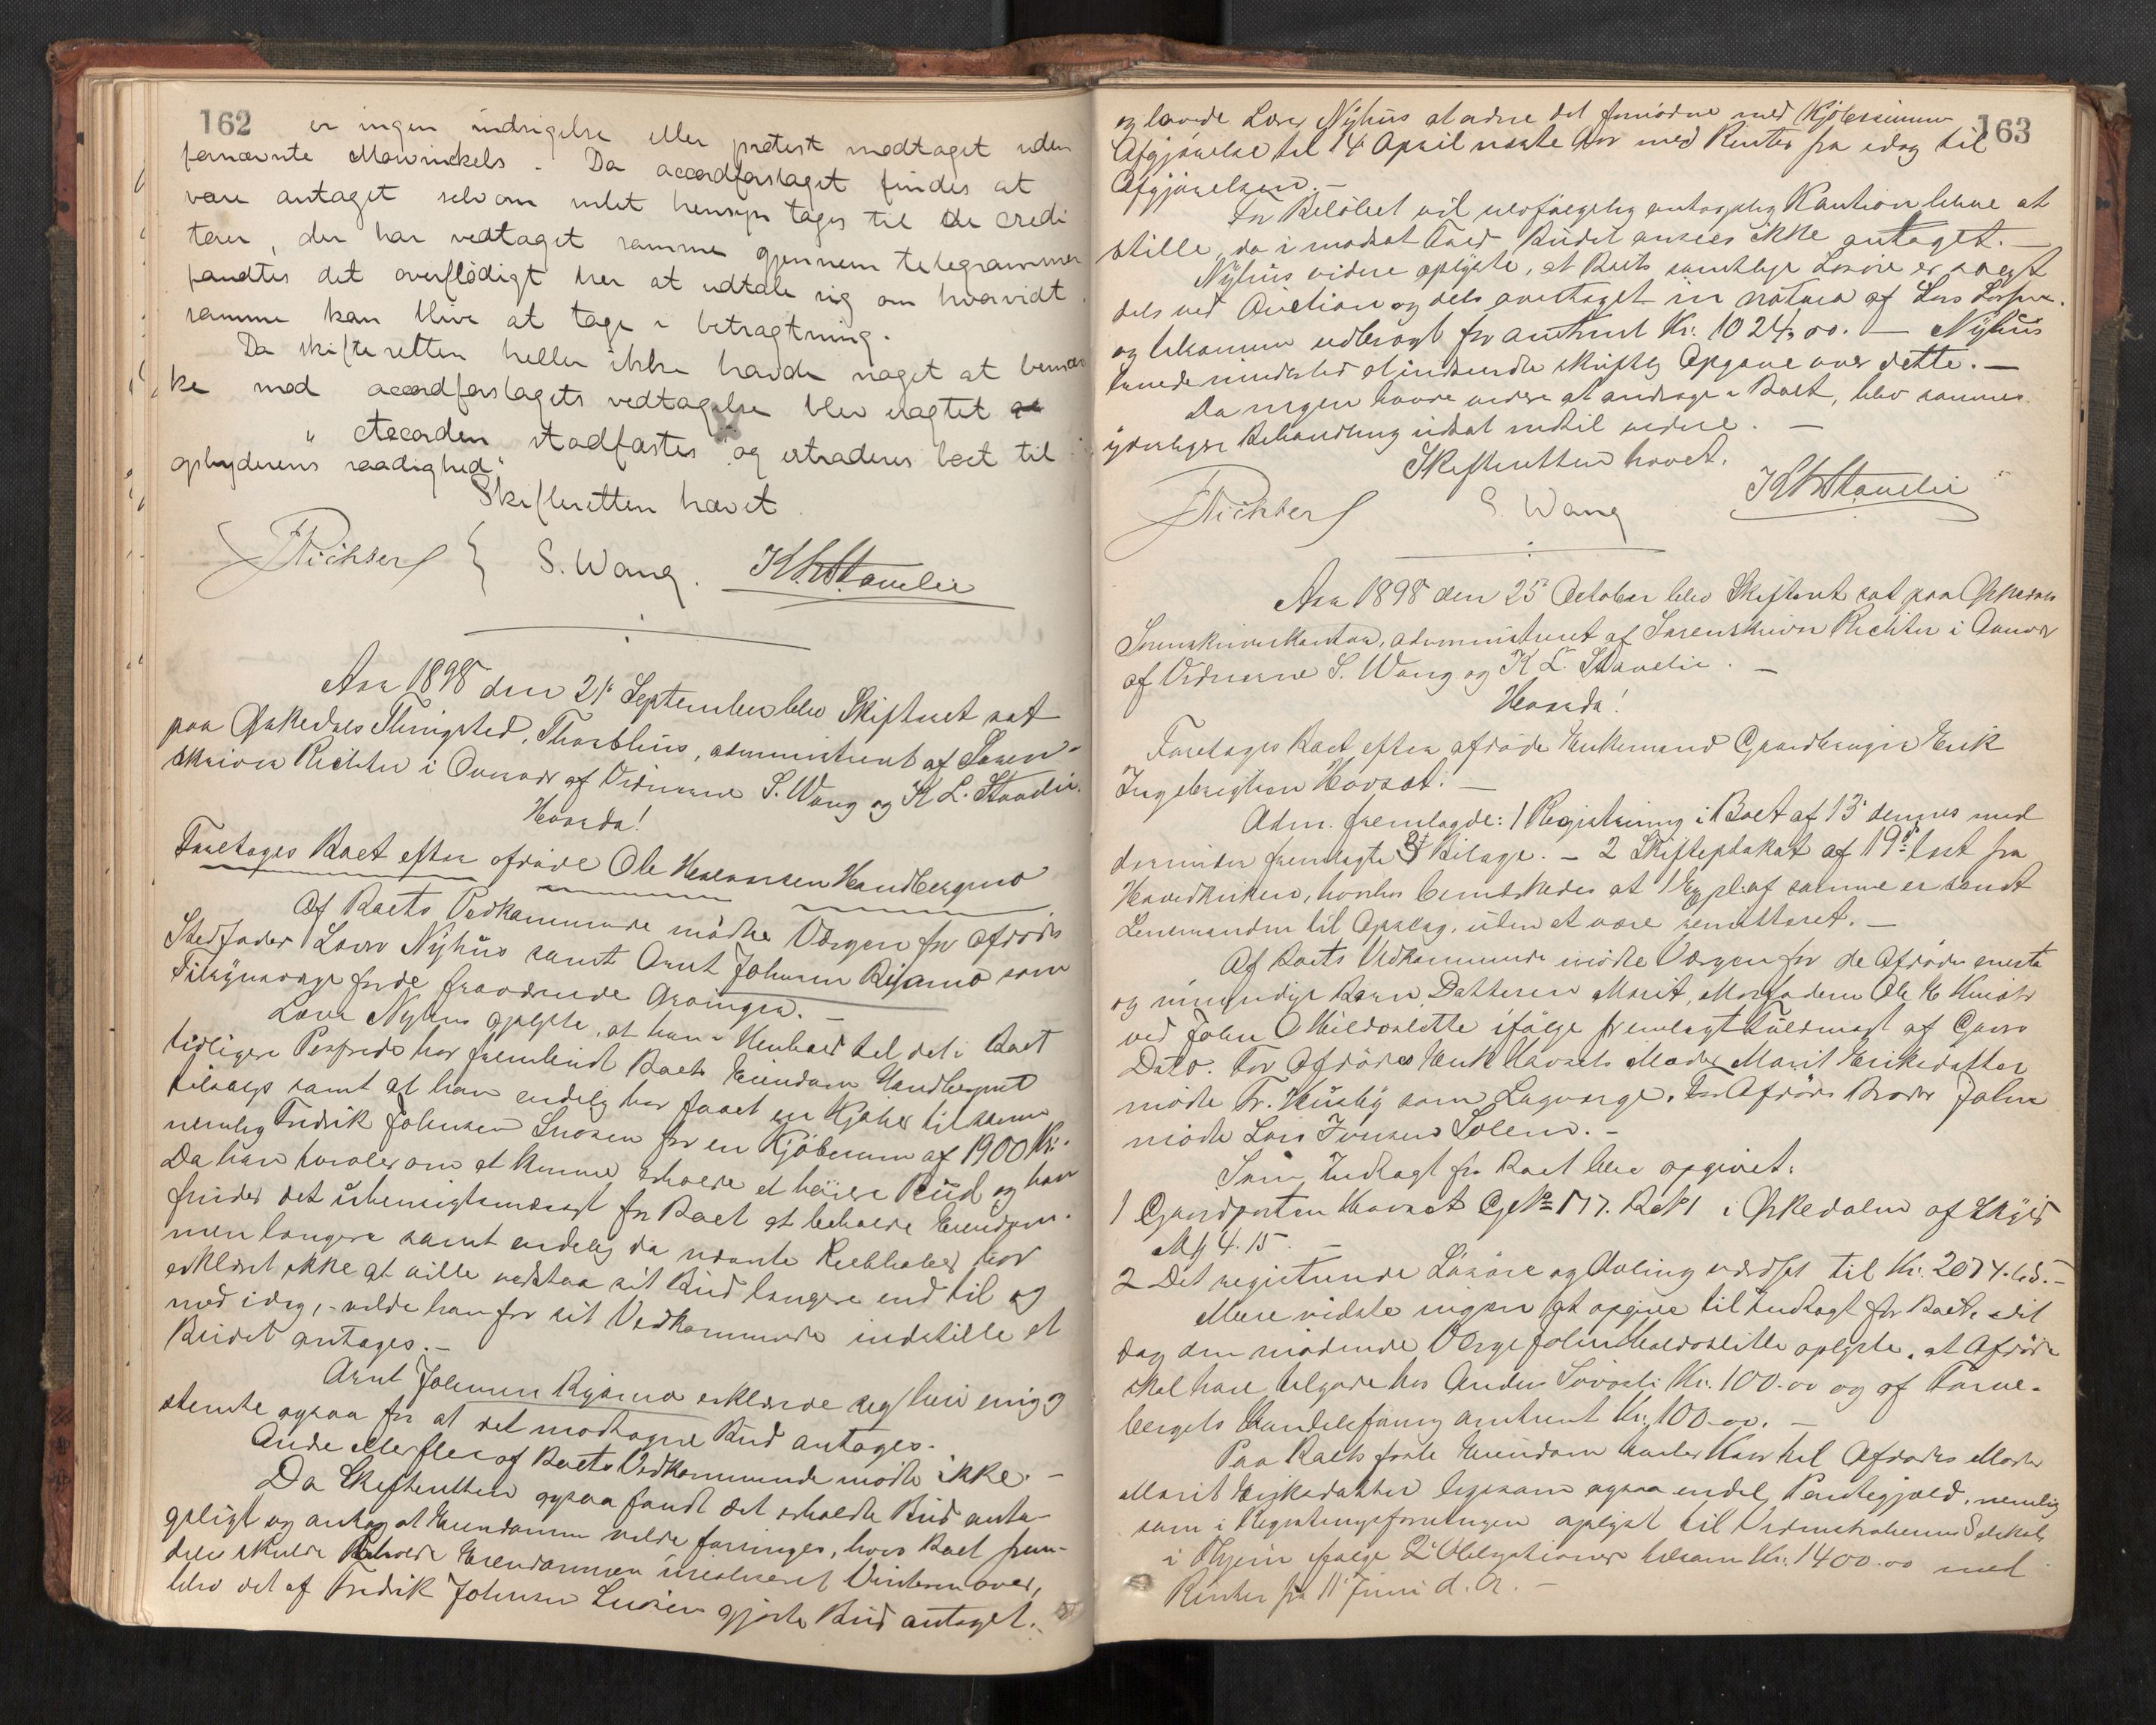 162
er ingen indsigelse eller protest modtaget uden
fornævnte Mowinckels. Da accordforslaget findes at
være antaget selv om intet hensyn tages til de credi
torer, der har vedtaget samme gjennem telegrammer
fandtes det overflödigt her at udtale sig om hvorvidt
samme kan blive at tage i betragtning.
Da skifteretten heller ikke havde noget at bemær
ke mod accordforslagets vedtagelse blev eragtet
" Accorden stadfæstes og extraderes boet til
opbyderens raadighed"
Skifteretten hævet
Richter S. Wang. K L Stavelie
Aar 1898 den 21 September blev Skifteret sat
paa Örkedals Thingsted, Thorshus, administreret af Soren-
skriver Richter i Overvær af Vidnerne S. Wang og K L. Stavelie.
Hvorda!
Foretages Boet efter afdøde Ole Haldorsen Handbergmo
Af Boets Vedkommende mødte Værgen for Afdødes
Stedfader Lars Nyhus samt Arnt Johnsen Rijamo som
Tilsynsværge for de fraværende Arvinger. –
Lars Nyhus oplyste, at han i Henhold til det i Boet
tidligere Passerede har frembudt Boets Eiendom Handbergmo
tilsalgs samt at han endelig har faaet en Kjøber til samme
nemlig Fredrik Johnsen Snosen for en Kjöbesum af 1900 Kr.
Da han tvivler om at kunne erholde et høiere Bud og han
finder det uhensigtsmæssigt for Boet at beholde Eiendom-
men længere samt endelig da nævnte Liebhaber har
erklæret ikke at ville vedstaa sit Bud længere end til og
med idag, – vilde han for sit Vedkommende indstille at
Budet antages. –
Arnt Johnsen Rijamo erklærede sig heri enig og
stemte ogsaa for at det modtagne Bud antages.
Andre eller flere af Boets Vedkommende mødte ikke. –
Da Skifteretten ogsaa fandt det erholdte Bud anta-
geligt og antog at Eiendommen vilde forringes, hvis Boet frem-
deles skulde beholde Eiendommen urealiseret Vinteren over,
blev det af Fredrik Johnsen Snosen gjorte Bud antaget.
163
og lovede Lars Nyhus at ordne det fornødne med Kjöbesummens
Afgjørelse til 14 April næste Aar med Renter fra idag til
Afgjørelsen. –
For Beløbet vil uopholdelig antagelig Kaution blive at
stille, da i modsat Fald Budet ansees ikke antaget. –
Nyhus videre oplyste, at Boets samtlige Løsøre er solgt
dels ved Auction og dels overtaget in natura af Lars
og tilsammen udbragt for omtrent Kr. 1024,00. – Nyhus
lovede imidlertid at indsende skriftlig Opgave over dette. –
Da ingen havde videre at andrage i Boet, blev sammes
yderligere Behandling udsat indtil videre. –
Skifteretten hævet.
Richter S. Wang K L Stavelie
Aar 1898 den 25 October blev Skifteret sat paa Örkedals
Sorenskriverkontor, administreret af Sorenskriver Richter i Overvær
af Vidnerne S. Wang og K L. Stavelie. –
Hvorda!
Foretages Boet efter afdøde Enkemand Gaardbruger Erik
Ingebrigtsen Hovsæt. –
Adm. fremlagde: 1 Registrering i Boet af 13 dennes med
derunder fremlagte Bilage. – 2 Skifteplakat af 19 læst fra
Hovedkirken, hvorhos bemærkedes at 1 Expl. af samme er sendt
Lensmanden til Opslag, uden at være remitteret. –
Af Boets Vedkommende mødte Værgen for de Afdødes eneste
og umyndige Barn, Datteren Marit, Morfaderen Ole
ved John O Meldosletto ifølge fremlagt Fuldmagt af Gaars
Dato. For Afdødes Erik Hovsets Moder Marit Eriksdatter
mødte Fr. Huseby som Lagværge. For Afdødes Broder John
mødte Lars Jonsen Solem. –
Som Indtægt for Boet blev opgivet:
1 Gaardparten Hovset G No 177. B No 1 i Örkedalen af Skyld
Mk 4.15. –
2 Det registrerede Løsøre og Avling værdsat til Kr. 2074.65. –
Mere vidste ingen at opgive til Indtægt for Boet. Dat
dag den mødende Værge John Meldosletto oplyste, at Afdøde
skal have tilgode hos Anders Kr. 100.00 og af
bergets Handelsforening omtrent Kr. 100.00. –
Paa Boets faste Eiendom hviler Kaar til Afdødes Moder
Marit Eriksdatter ligesom ogsaa endel Pantegjæld, nemlig
som i Registreringsforretningen oplyst til Videnskabernes Selskab
i Thjem ifølge 2 Obligationer tilsam. Kr. 1400.00 med
Renter fra 11 Juni d. A. –